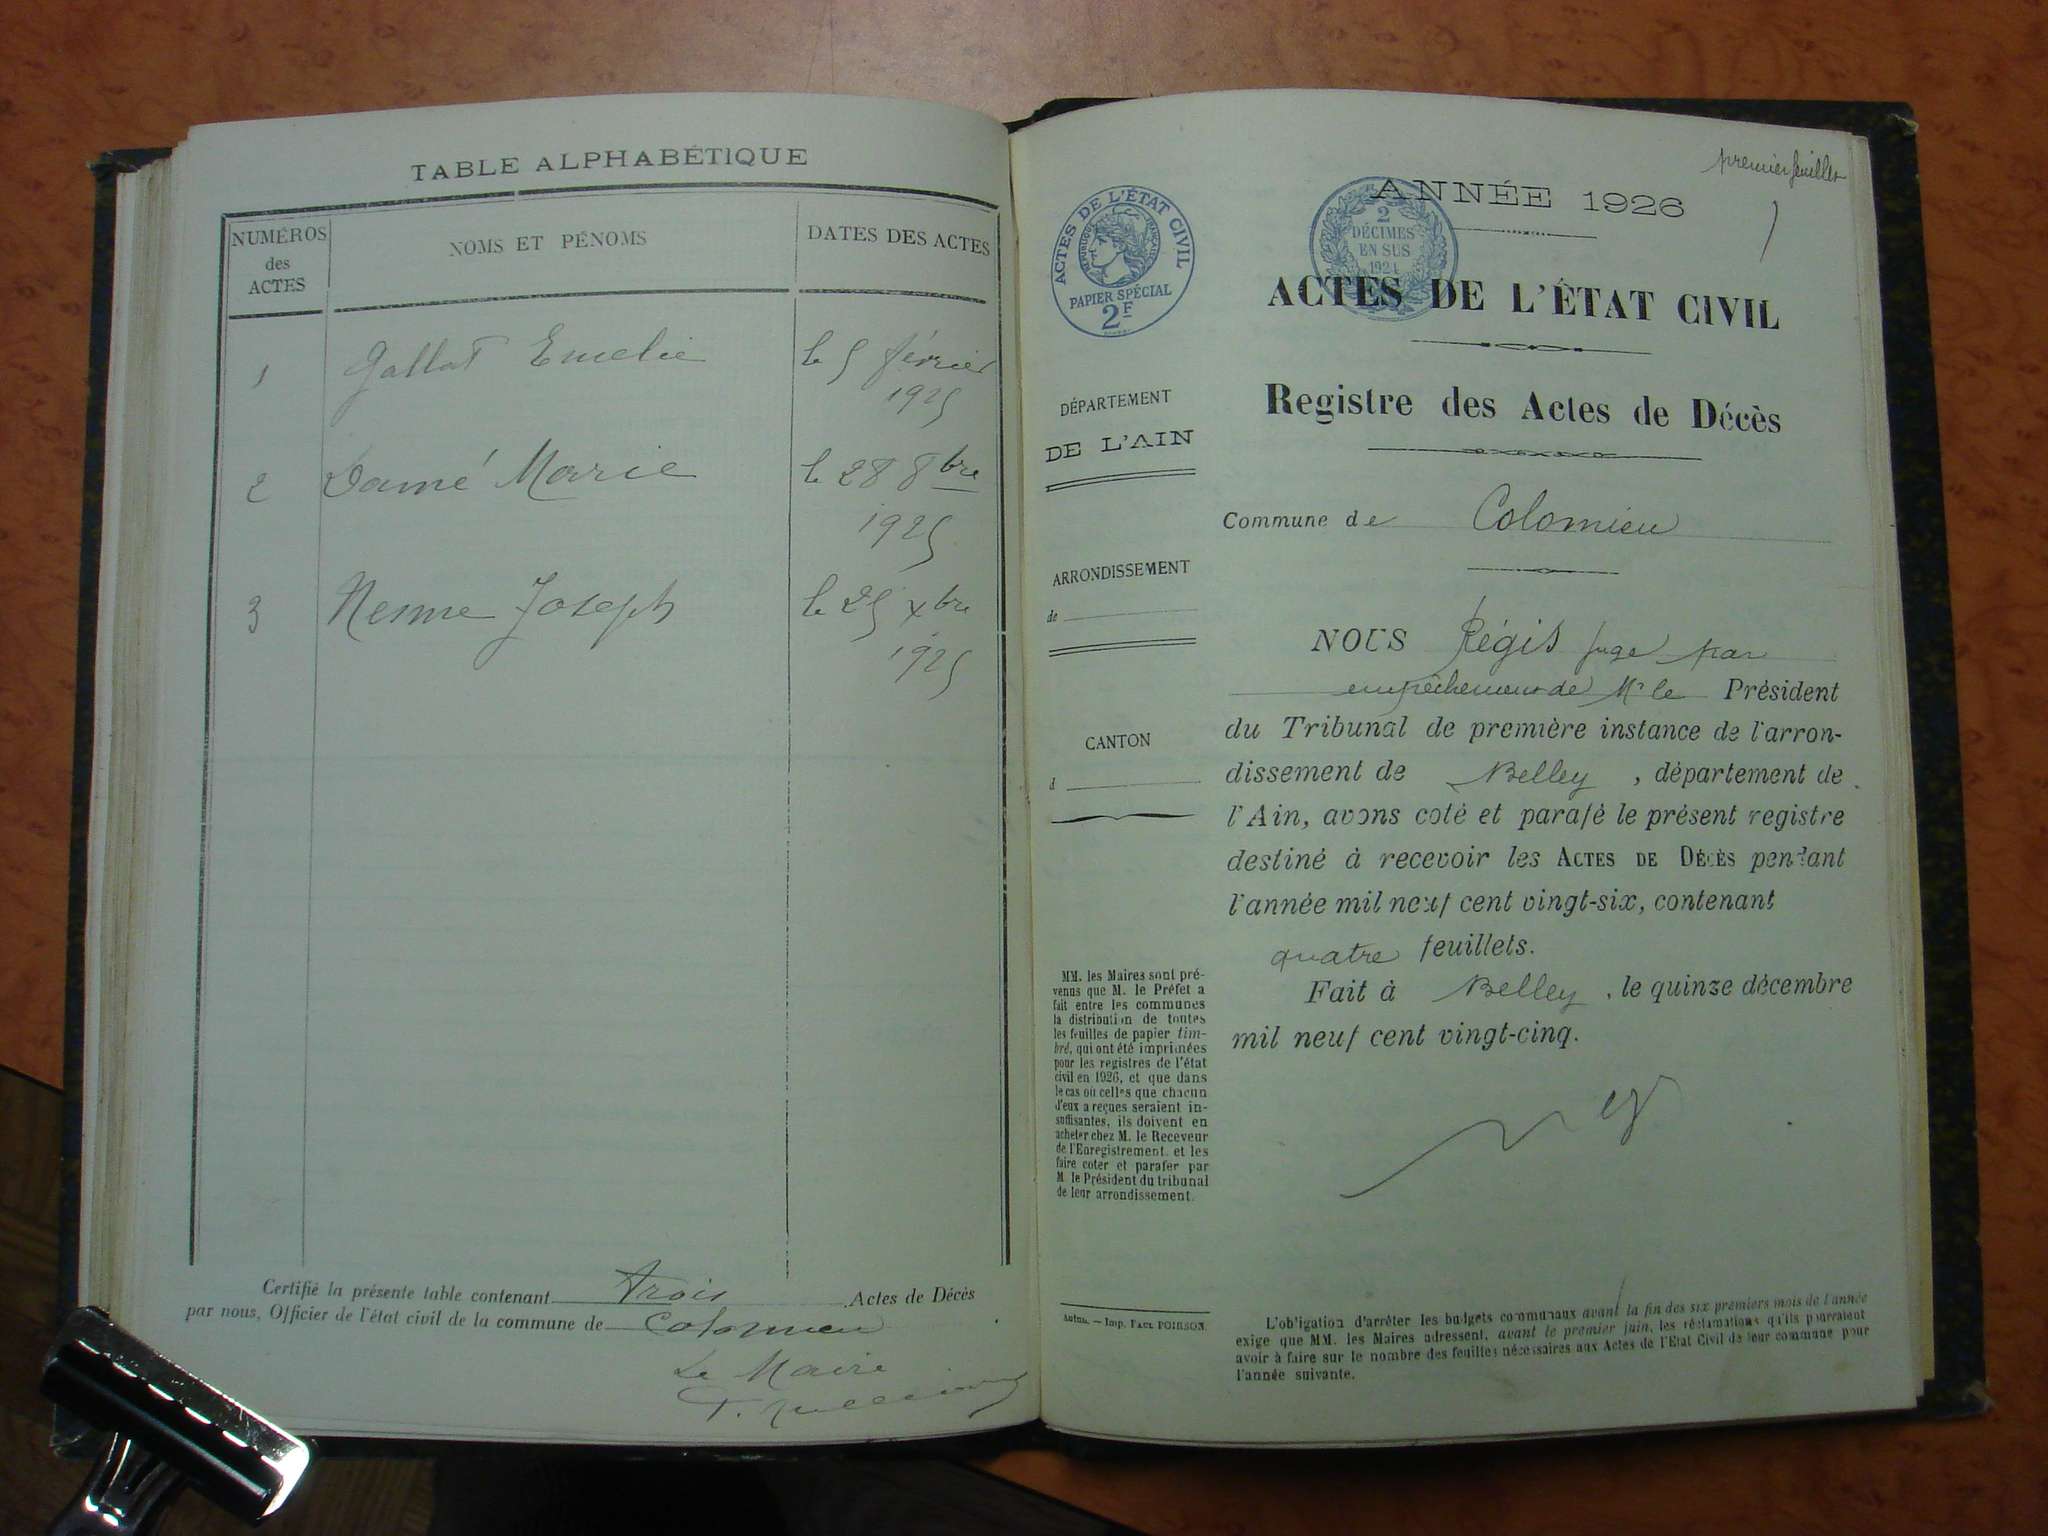 TABLE ALPHABÉTIQUE
NUMÉROS des ACTES
NOMS ET PÉNOMS
DATES DES ACTES
1 Gallat Emelie le 5 février
1925
2 Damé Marie le 28 8bre
1925
3 Nesme Joseph le 25 xbre
1925
Certifié la présente table contenant trois Actes de Décès
par nous, Officier de l'état civil de la commune de Colomieu
Le Maire
premier feuillet
ANNÉE 1926
ACTES DE L'ÉTAT CIVIL
RÉPUBLIQUE FRANÇAISE
PAPIER SPÉCIAL
2F
2
DÉCIMES
EN SUS
1924
ACTES DE L'ÉTAT CIVIL
Registre des Actes de Décès
DÉPARTEMENT
DE L'AIN
ARRONDISSEMENT
de
CANTON
d
Commune de Colomieu
NOUS Régis juge par
empêchement de Mr le Président
du Tribunal de première instance de l'arron-
dissement de Belley, département de
l'Ain, avons coté et parafé le présent registre
destiné à recevoir les ACTES DE DÉCÈS pendant
l'année mil neuf cent vingt-six, contenant
quatre feuillets.
Fait à Belley, le quinze décembre
mil neuf cent vingt-cinq.
MM. les Maires sont pré-
venus que M. le Préfet a
fait entre les communes
la distribution de toutes
les feuilles de papier tim-
bré, qui ont été imprimées
pour les registres de l'état
civil en 1926, et que dans
le cas où celles que chacun
d'eux a reçues seraient in-
suffisantes, ils doivent en
acheter chez M. le Receveur
de l'Enregistrement et les
faire coter et parafer par
M. le Président du tribunal
de leur arrondissement.
Autun. — Imp. PAUL POIRSON.
L'obligation d'arrêter les budgets communaux avant la fin des six premiers mois de l'année
exige que MM. les Maires adressent, avant le premier juin, les réclamations qu'ils pourraient
avoir à faire sur le nombre des feuilles nécessaires aux Actes de l'Etat Civil de leur commune pour
l'année suivante.